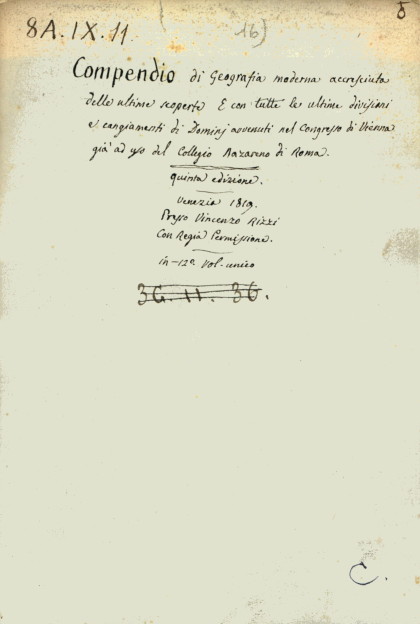 8A. IX. 11
16)
8
Compendio di Geografia moderna accresciuta
delle ultime scoperte E con tutte le ultime divisioni
e cangiamenti di Dominj avvenuti nel Congresso di Vienna
già ad uso del Collegio Nazareno di Roma.
quinta edizione.
Venezia 1819.
Presso Vincenzo Rizzi
Con Regia Permissione.
in-12º Vol. unico
36. 11. 36.
C.